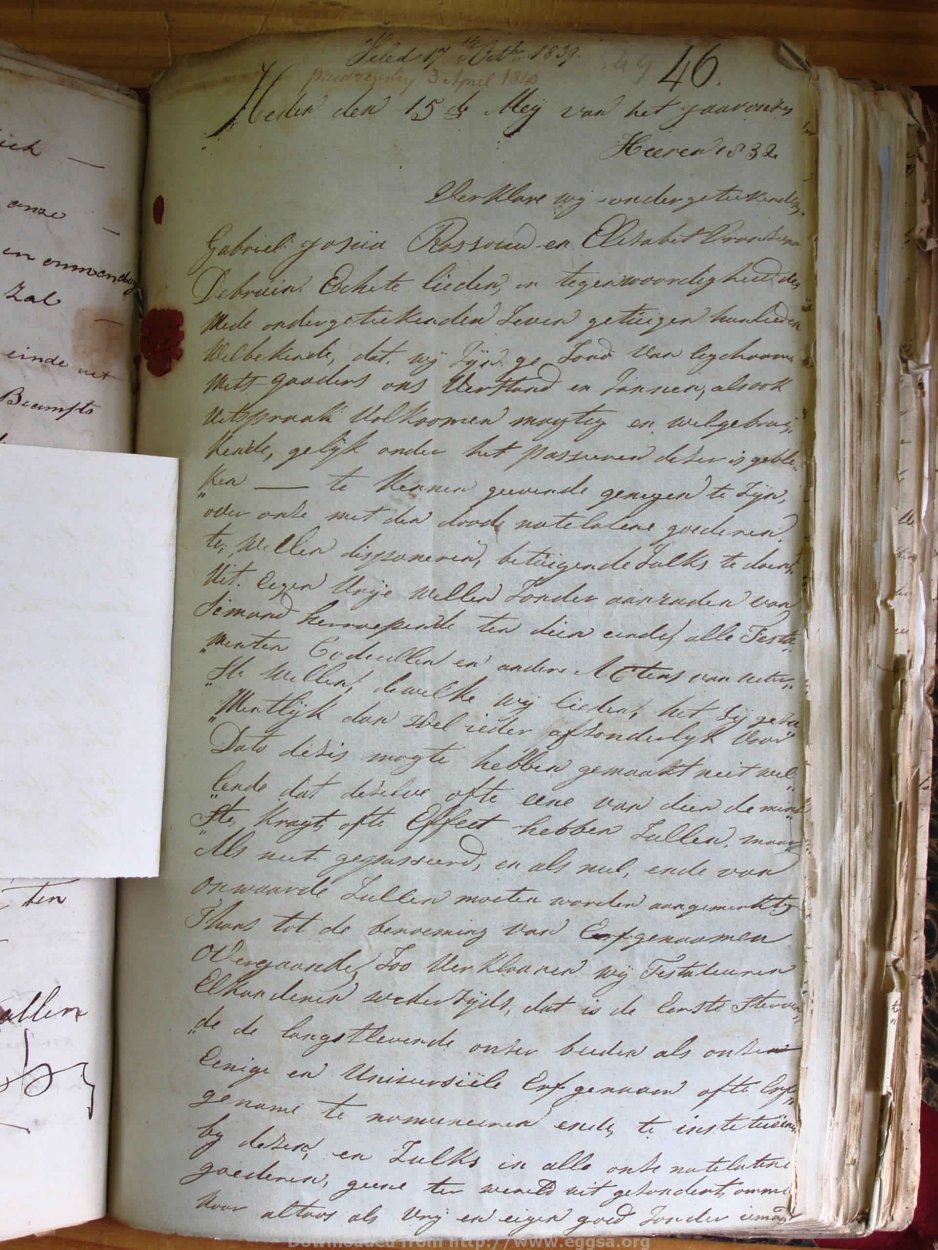 Filed 17th Octbr 1839.
3 April 1840
46.
Heden den 15de Meij van het jaar onzes
Heeren 1832
Verklare wij ondergetekenden,
Gabriel Josua Rossouw en Elisabet
Debruin Echte lieden, in tegenwoordigheid des
mede ondergetekenden Seven getuigen hunlieden
Welbekende, dat wij Zijn ge Zond van legchaam
mits gaaders ons Verstand en Zinnen, alsook
uitspraak Volkoomen magtig en welgebrui
kende, gelijk onder het passeeren deser is geble
ken — te kennen geevende genegen te Zijn,
over onse met den doode natelatene goederen
te willen disponeren, betuigende Zulks te doen,
Uit Eigen Vrije willen Zonder aanraden van
Iemand herroepende ten dien einde alle Testa
menten Codicillen en andere Actens van uiter
ste willen, dewelke wij lieden, het Zij geza
mentlijk dan wel ieder afsonderlijk Voor
Dato deses mogte hebben gemaakt niet wil
lende dat deselve ofte eene van dien de mins
ste, kragt ofte Effect hebben Zullen, maar
Als niet gepasseerd, en als nul, ende van
Onwaarde Zullen moeten worden aangemerkt
Thans tot de benoeming van Erfgenaamen
Overgaande, Zoo Verklaaren wij Testateuren
Elkanderen wedertijds, dat is de Eerste sterven
de de langstlevende onser beiden als onsen
Eenige en Universiële Erfgenaam ofte Erf
gename te nomineeren ende te institueeren
by desen, en Zulks in alle onse natelatene
goederen, geene ter wereld uit gesondert, omme
Voor altoos als Vrij en eigen goed Zonder iemand
ich —
onze
Zal
einde
Beampts
ten
allem
Downloaded from http://www.eggsa.org